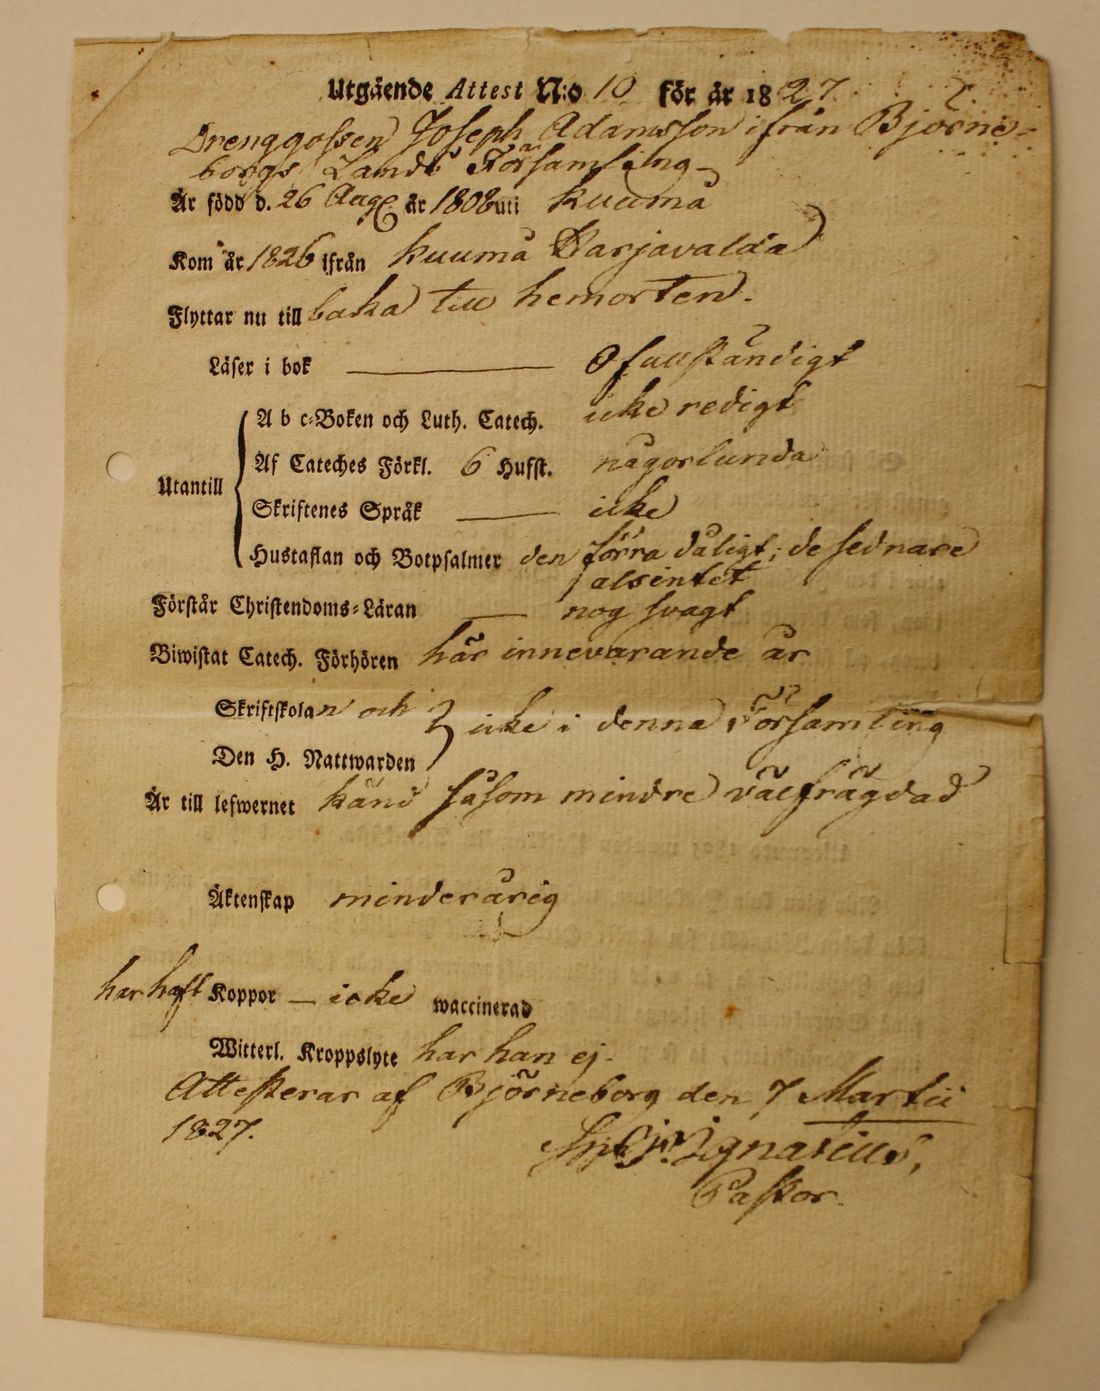 Utgående Attest N:o 10 för år 1827.
Drenggossen Joseph Adamsson ifrån Björne-
borgs Lands Församling
Är född d. 26 Aug. år 1808 uti Kuumå
Kom år 1826 ifrån Kuumå Harjavalda
Flyttar nu till baka till hemorten.
Läser i bok — Ofullständigt
Utantill
A b c-Boken och Luth. Catech. icke redigt
Af Cateches Förkl. 6 Hufst. någorlunda
Skriftenes Språk — icke
Hustaflan och Botpsalmer den förra dåligt; de sednare
alsintet
Förstår Christendoms-Läran — nog svagt
Biwistat Catech. Förhören här innevarande år
Skriftskolan och
icke i denna Församling
Den H. Nattwarden
Är till lefwernet känd såsom mindre välfrägdad
Äktenskap minderårig
har haft Koppor — icke waccinerad
Witterl. Kroppslyte har han ej.
Attesterar af Björneborg den 7 Martii
1827.
Ignatius,
Pastor.